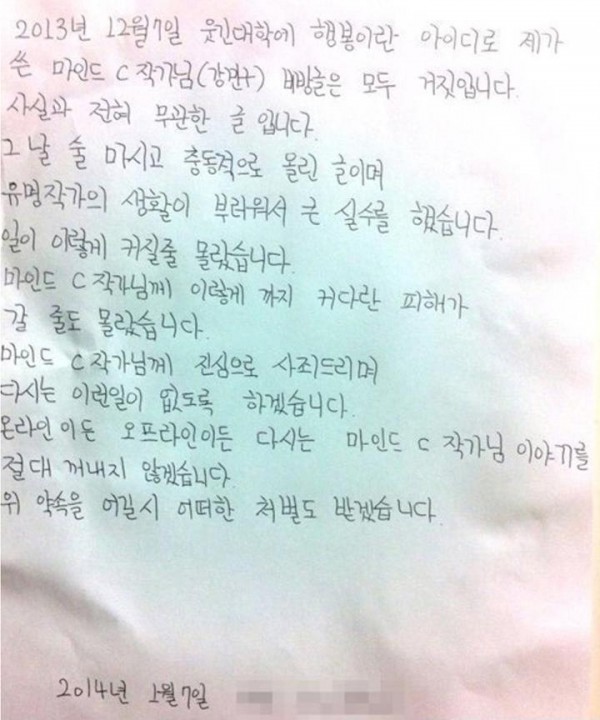 2013년 12월7일 웃긴대학에 행봉이란 아이디로 제가
쓴 마인드 C 작가님(강전+) 비방글은 모두 거짓입니다.
사실과 전혀 무관한 글 입니다.
그 날 술 마시고 충동적으로 올린 글이며
유명작가의 생활이 부러워서 큰 실수를 했습니다.
일이 이렇게 커질줄 몰랐습니다.
마인드 C 작가님께 이렇게 까지 커다란 피해가
갈 줄도 몰랐습니다.
마인드 C 작가님께 진심으로 사죄드리며
다시는 이런일이 없도록 하겠습니다.
온라인이든 오프라인이든 다시는 마인드 C 작가님 이야기를
절대 꺼내지 않겠습니다.
위 약속을 어길시 어떠한 처벌도 받겠습니다.
2014년 1월7일